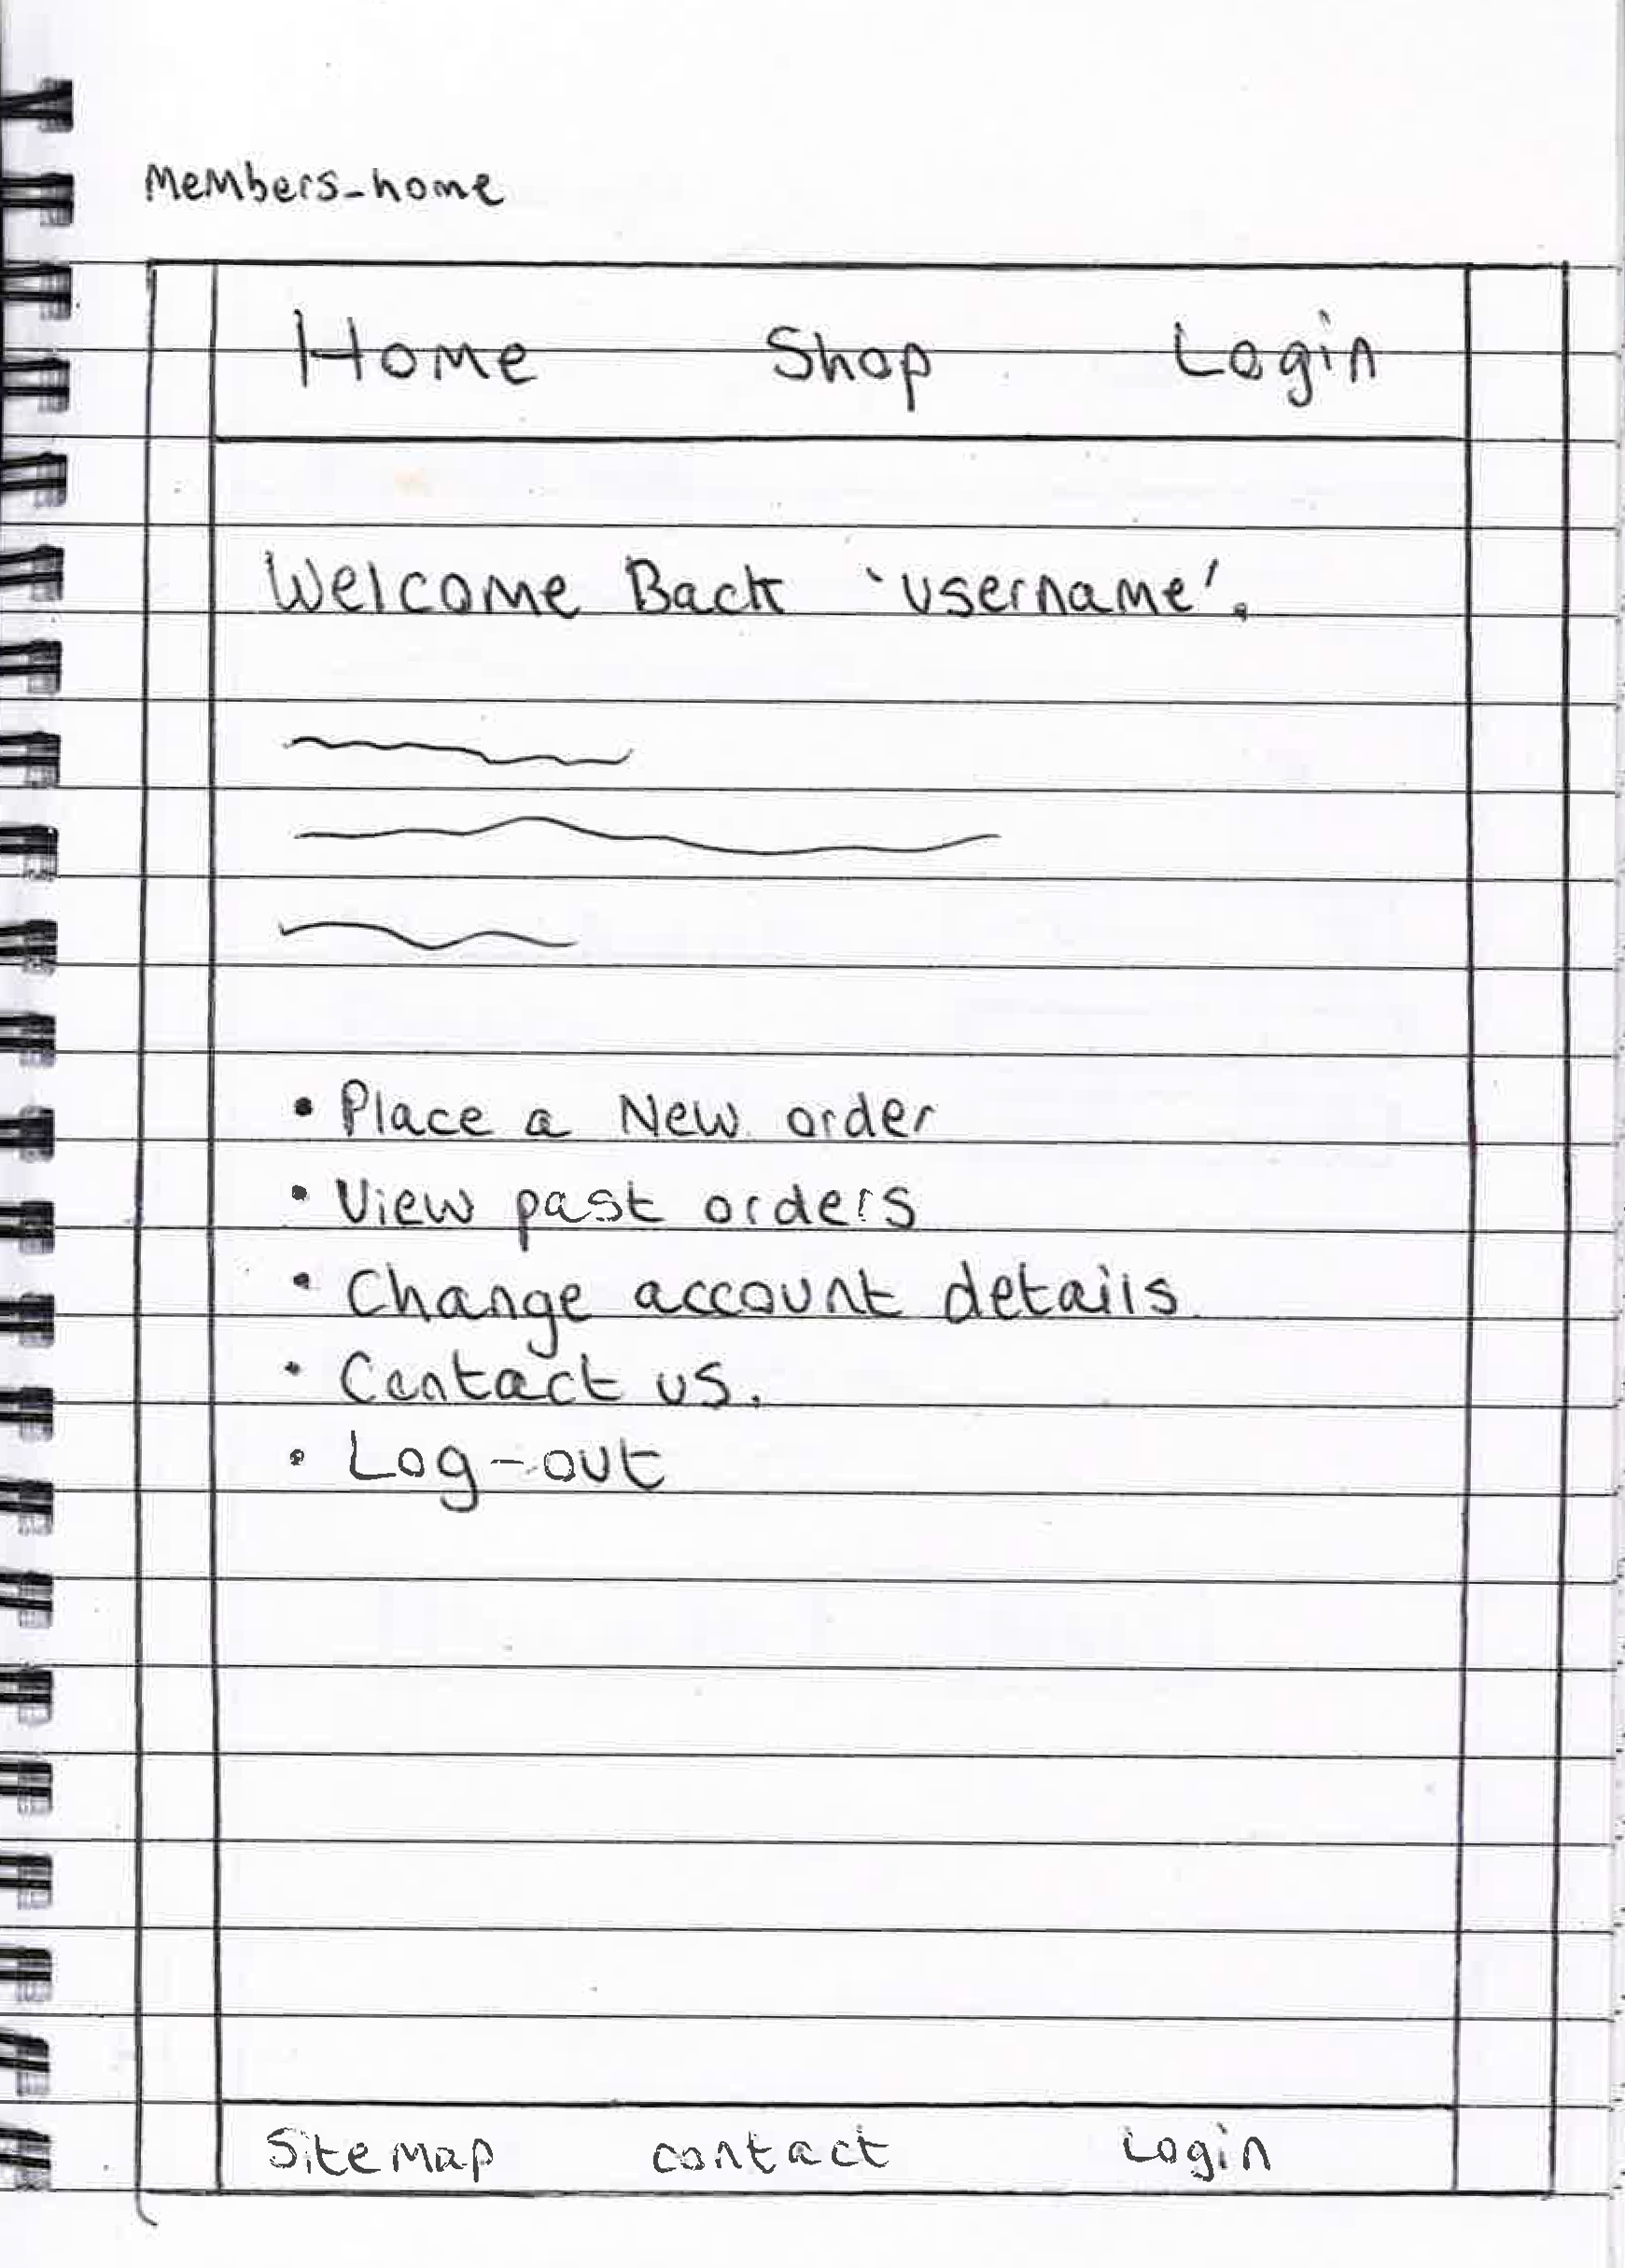 Members-home
Home Shop Login
Welcome Back 'username'.
• Place a New order
• View past orders
• Change account details.
• Contact us.
• Log-out
Sitemap contact Login